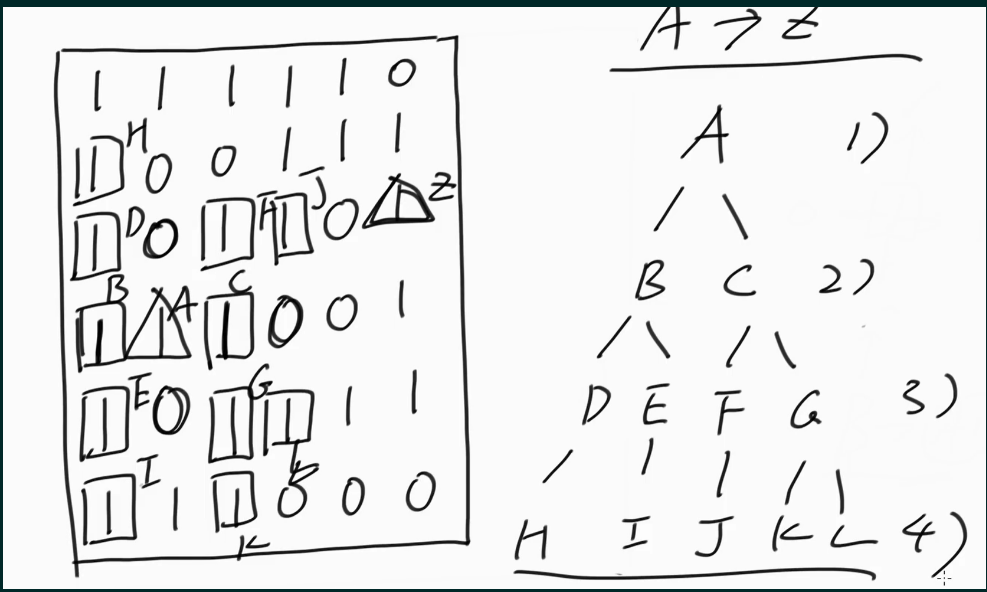 A → Z
1 1 1 1 1 0
1 H 0 0 1 1 1
1 D 0 1 F 1 J 0 1 Z
1 B 1 A 1 C 0 0 1
1 E 0 1 G 1 L 1 1
1 I 1 1 K 0 0 0
A 1)
B C 2)
D E F G 3)
H I J K L 4)